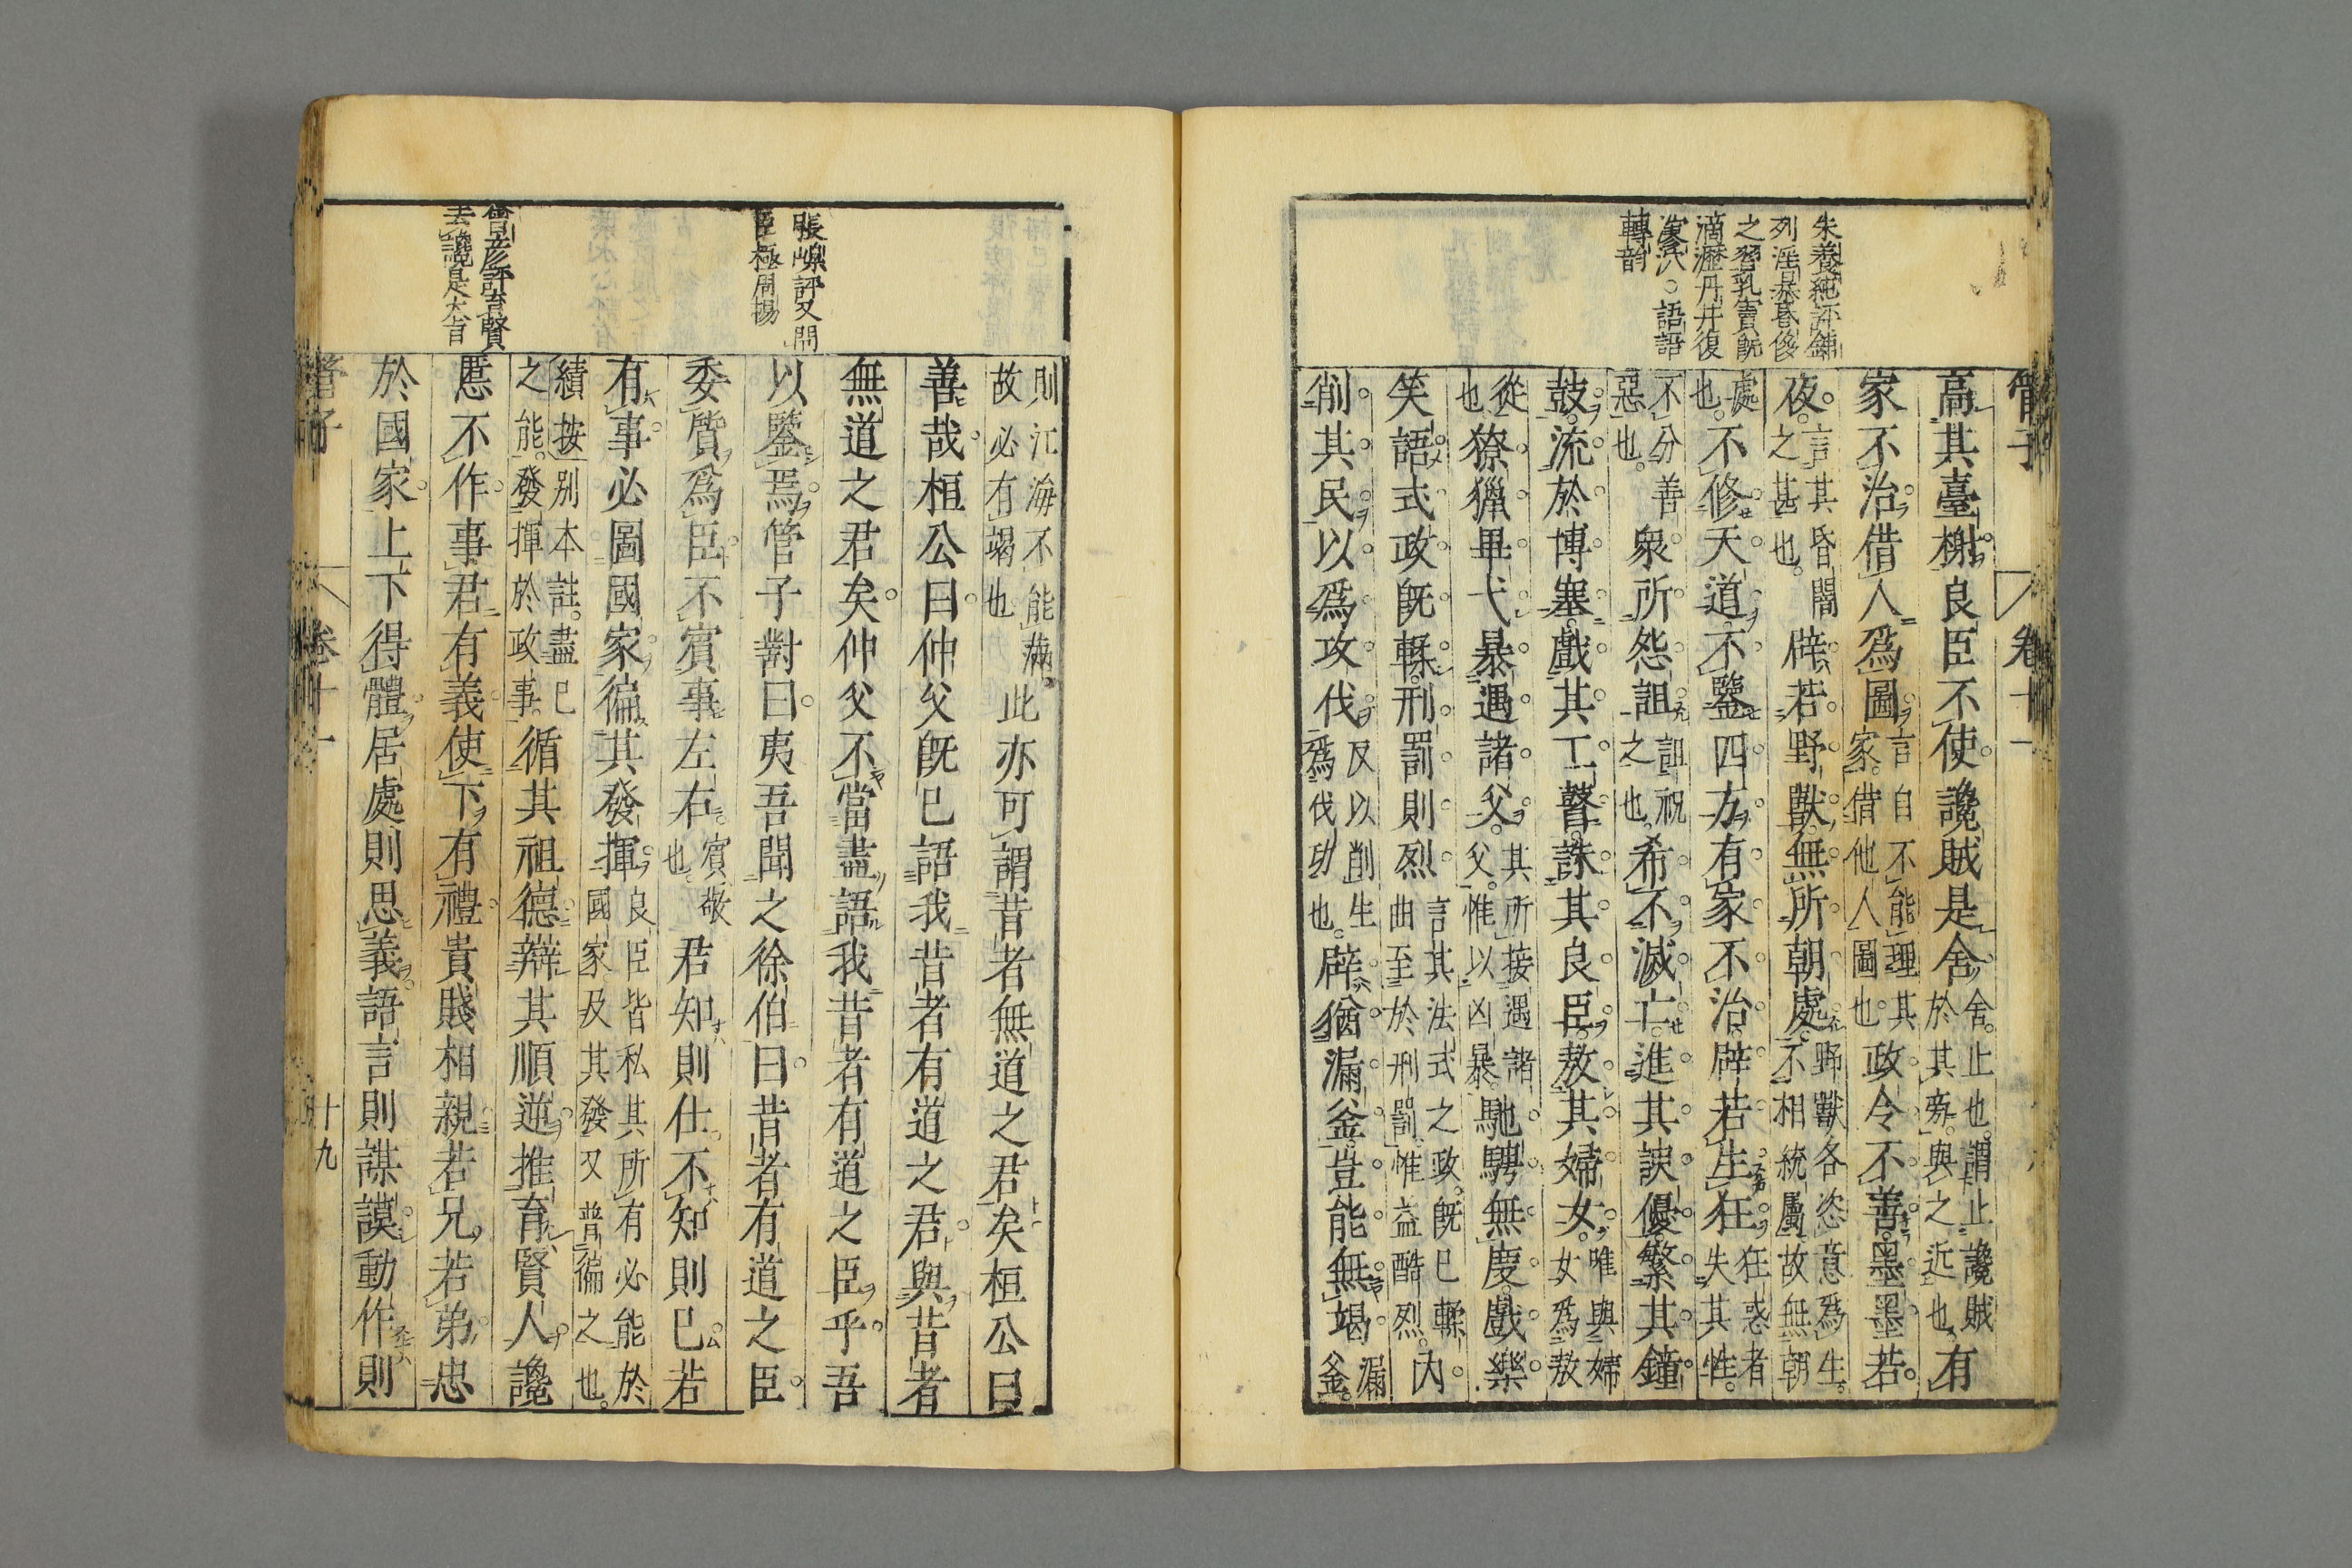 管子 卷十一
朱養純評鋪
列淫暴昏侈
之習乳賣旣
滴瀝丹井復
濛汃。語語
轉韵
高其臺榭。良臣不使。讒賊是舍。舍。止也。謂止讒賊於其旁。與之近也。有
家不治。借人爲圖。言自不能理其家。借他人圖也。政令不善。墨墨若
夜。言其昏闇之甚也。辟若野獸。無所朝處。野獸各恣意爲生。不相統屬。故無朝
處也。不修天道。不鑒四方。有家不治。辟若生狂。狂惑者失其性。
不分善惡也。衆所怨詛。詛祝之也。希不滅亡。進其諛優。繁其鐘
鼓。流於博塞。戲其工瞽。誅其良臣。敖其婦女。唯與婦女爲敖
從也獠獵畢弋。暴遇諸父。其所接遇諸父。惟以凶暴。馳騁無度。戲樂
笑語。式政旣輮。刑罰則烈。言其法式之政。旣已輮曲。至於刑罰。惟益酷烈。內
削其民。以爲攻伐。反以削生爲伐功也。辟猶漏釜。豈能無竭。漏釜。
則江海不能滿。故必有竭也此亦可謂昔者無道之君矣桓公曰
善哉桓公曰仲父旣已語我昔者有道之君與昔者
無道之君矣仲父不當盡語我昔者有道之臣乎吾
以鑒焉管子對曰夷吾聞之徐伯曰昔者有道之臣
委質爲臣不賓事左右。賓敬也。君知則仕不知則已若
有事必圖國家徧其發揮。良臣皆私其所有必能於國家及其發又普徧之也。
續按別本註。盡已之能。發揮於政事。循其祖德辯其順逆推育賢人讒
慝不作事君有義使下有禮貴賤相親若兄若弟忠
於國家上下得體居處則思義語言則謀謨動作則
張嵲評又開
臣極周揚
曾彥評育賢
去讒是大旨
管子 卷十一 十九